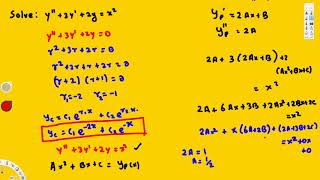 Solve: y'' + 3y' + 2y = x²
y'' + 3y' + 2y = 0
r² + 3r + 2r = 0
r² + 3r + 2 = 0
(r+2) (r+1) = 0
r₁ = -2 r₂ = -1
y_c = c₁e^{r₁x} + c₂e^{r₂x}
y_c = c₁e^{-2x} + c₂e^{-x}
y'' + 3y' + 2y = x²
Ax² + Bx + C = y_p(x)
y_p' = 2Ax + B
y_p'' = 2A
2A + 3(2Ax+B) + 2
(Ax²+Bx+C)
= x²
2A + 6Ax + 3B + 2Ax² + 2Bx + 2C
= x²
2Ax² + x(6A+2B) + (2A+3B+2C)
= x² + 0x
+0
2A = 1
A = 1/2